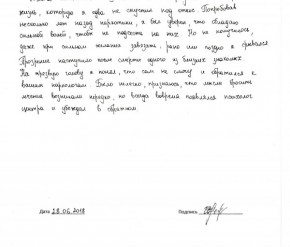 жизнь, которую я едва не спустил под откос. Попробовав
несколько лет назад наркотики, я был уверен, что обладаю
сильной волей, чтобы не подсесть на них. Но не получилось,
даже при сильном желании завязать, рано или поздно я срывался
Прозрение наступило после смерти одного из близких знакомых
На трезвую голову я понял, что сам не слезу и обратился к
вашим наркологам. Было тяжело, признаюсь, что мысли бросить
лечение возникали нередко, но всегда вовремя появлялся психолог
центра и убеждал в обратном.
Дата 28.06.2018
Подпись